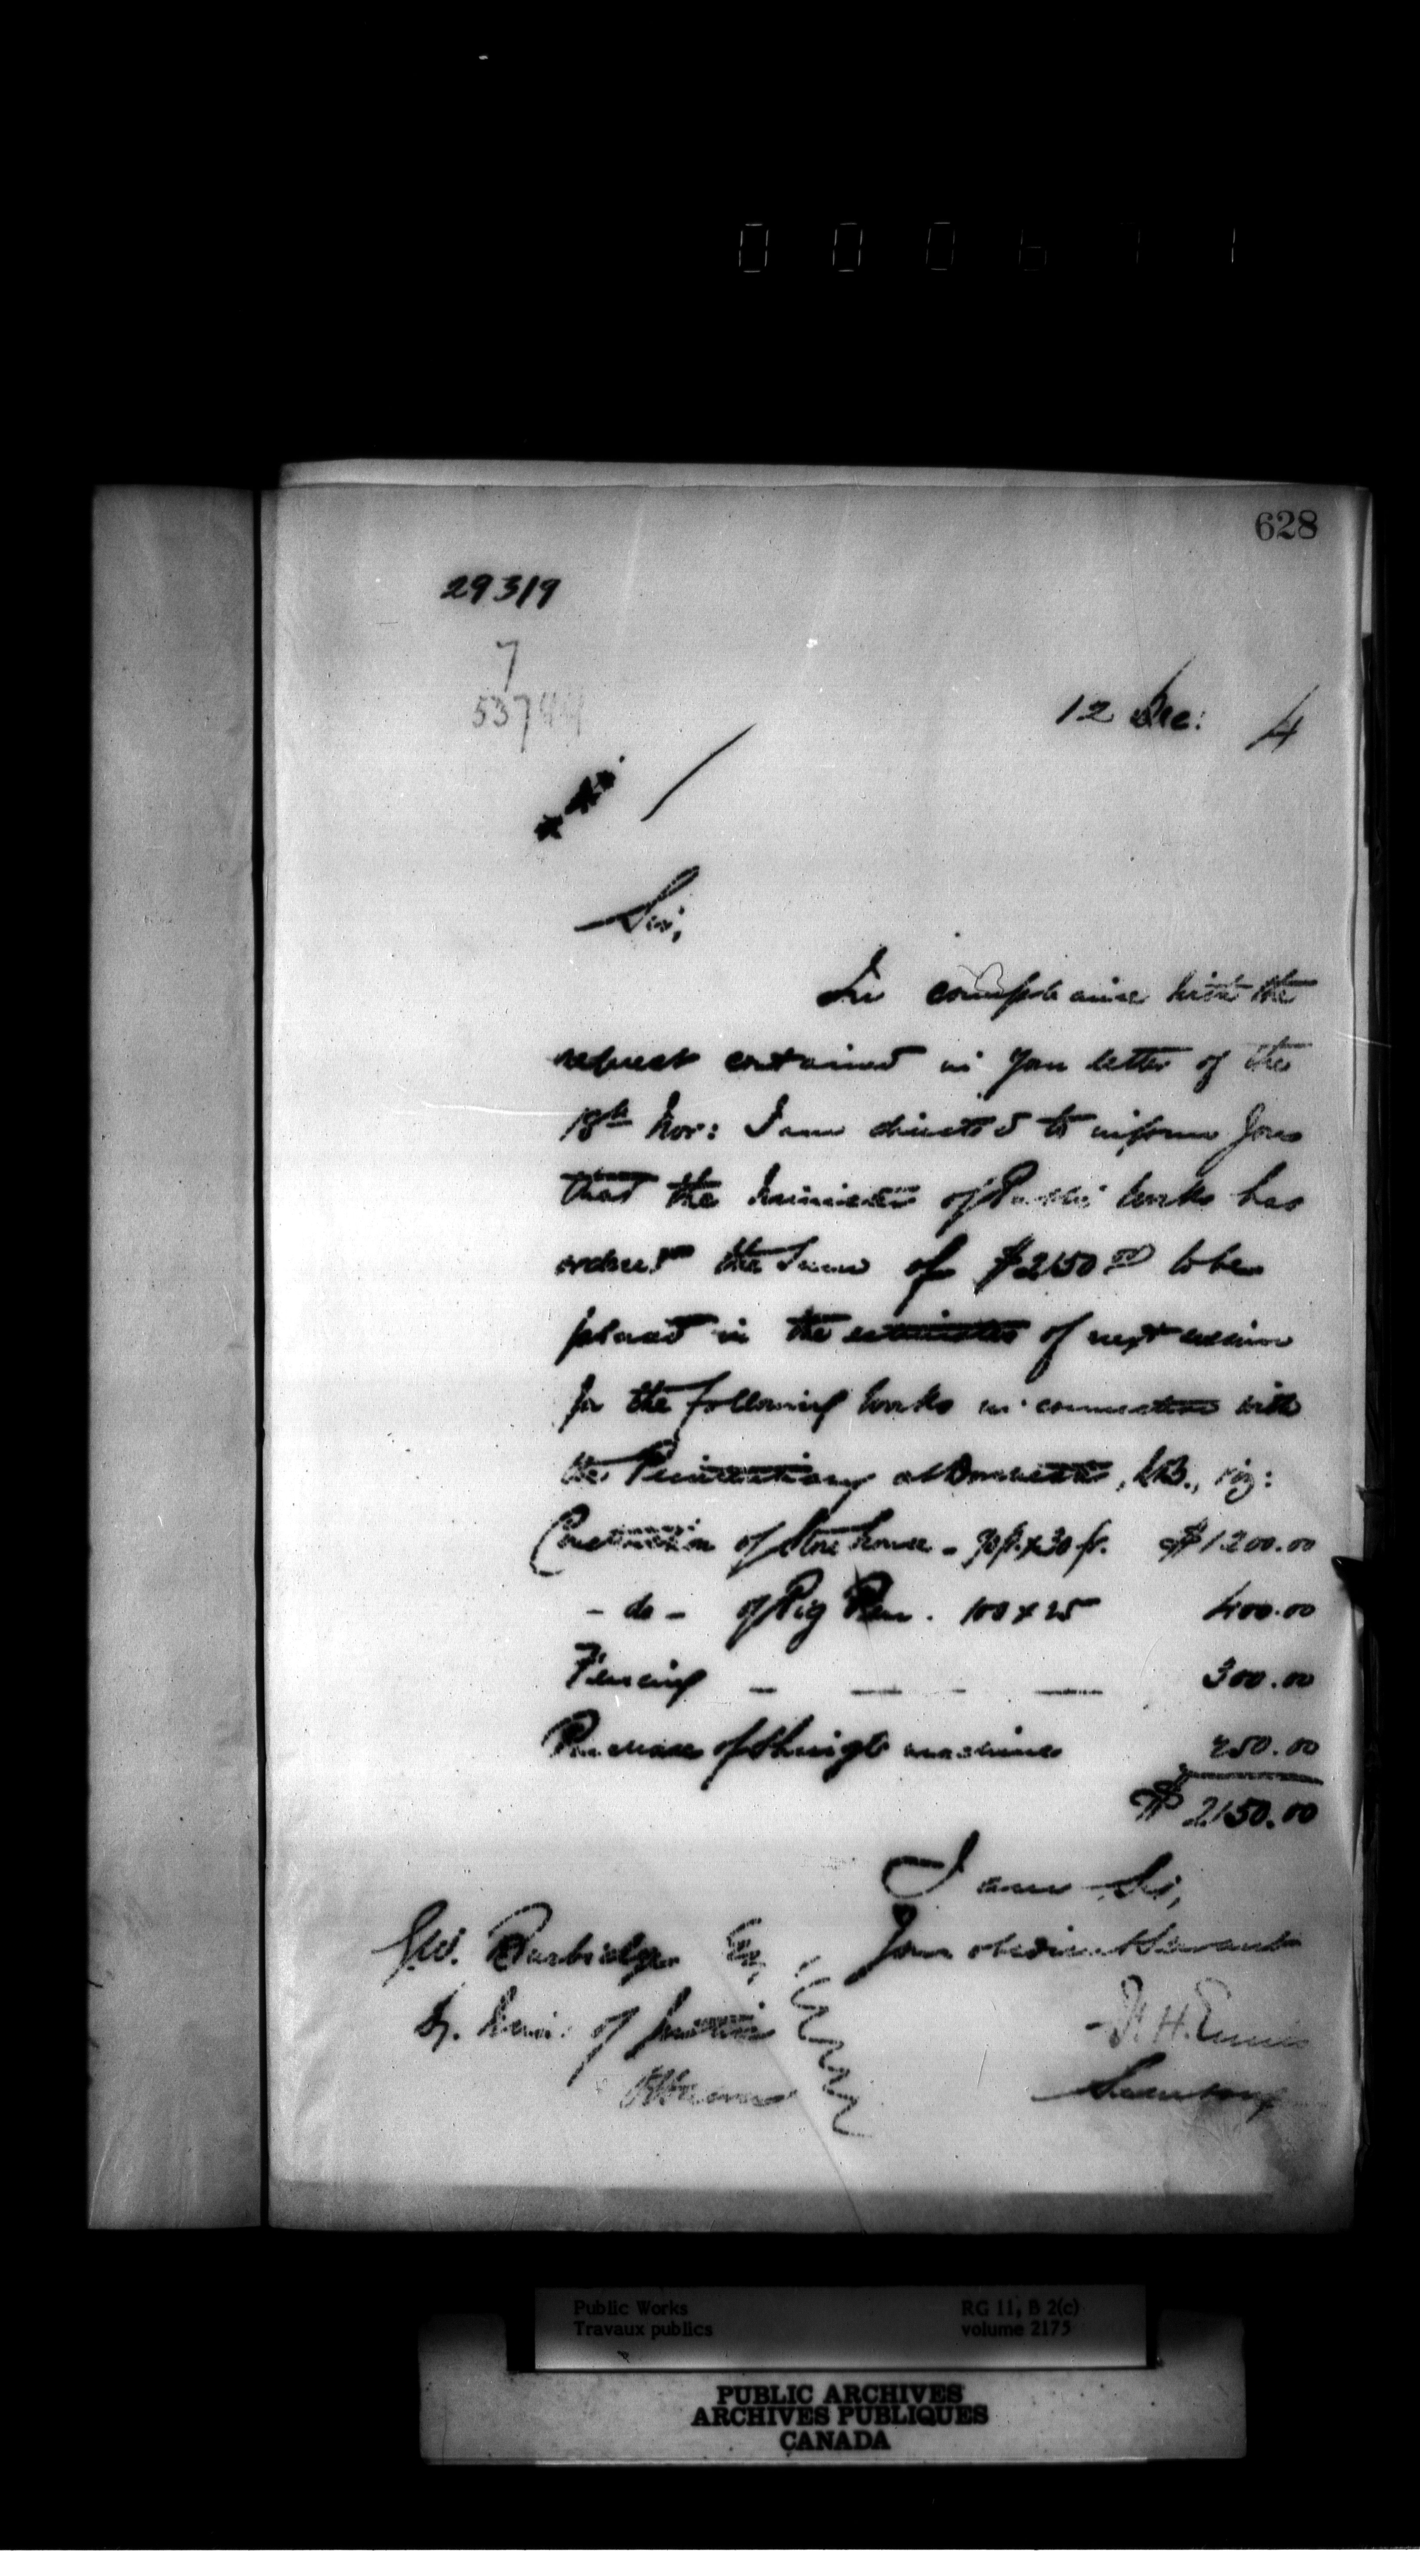 628
29319
7
53744
12 Dec: 4
Sir,
In compliance with the
request contained in your letter of the
18th Nov: I am directed to inform you
that the Minister of Public Works has
ordered the sum of $2150.00 to be
placed in the estimates of next session
for the following works in connection with
the Penitentiary at Dorchester, N.B., viz:
Construction of Store house - 70 ft. x 30 ft. $1200.00
- do - of Pig Pen. 100 x 25 400.00
Fencing - - - - 300.00
Purchase of Shingle machine 250.00
$2150.00
I am Sir,
Your obedient Servant
G.W. Burbidge Esq,
F. H. Ennis
Dy. Min. of Justice
Secretary
Ottawa
Public Works RG 11, B 2(c)
Travaux publics volume 2175
PUBLIC ARCHIVES
ARCHIVES PUBLIQUES
CANADA